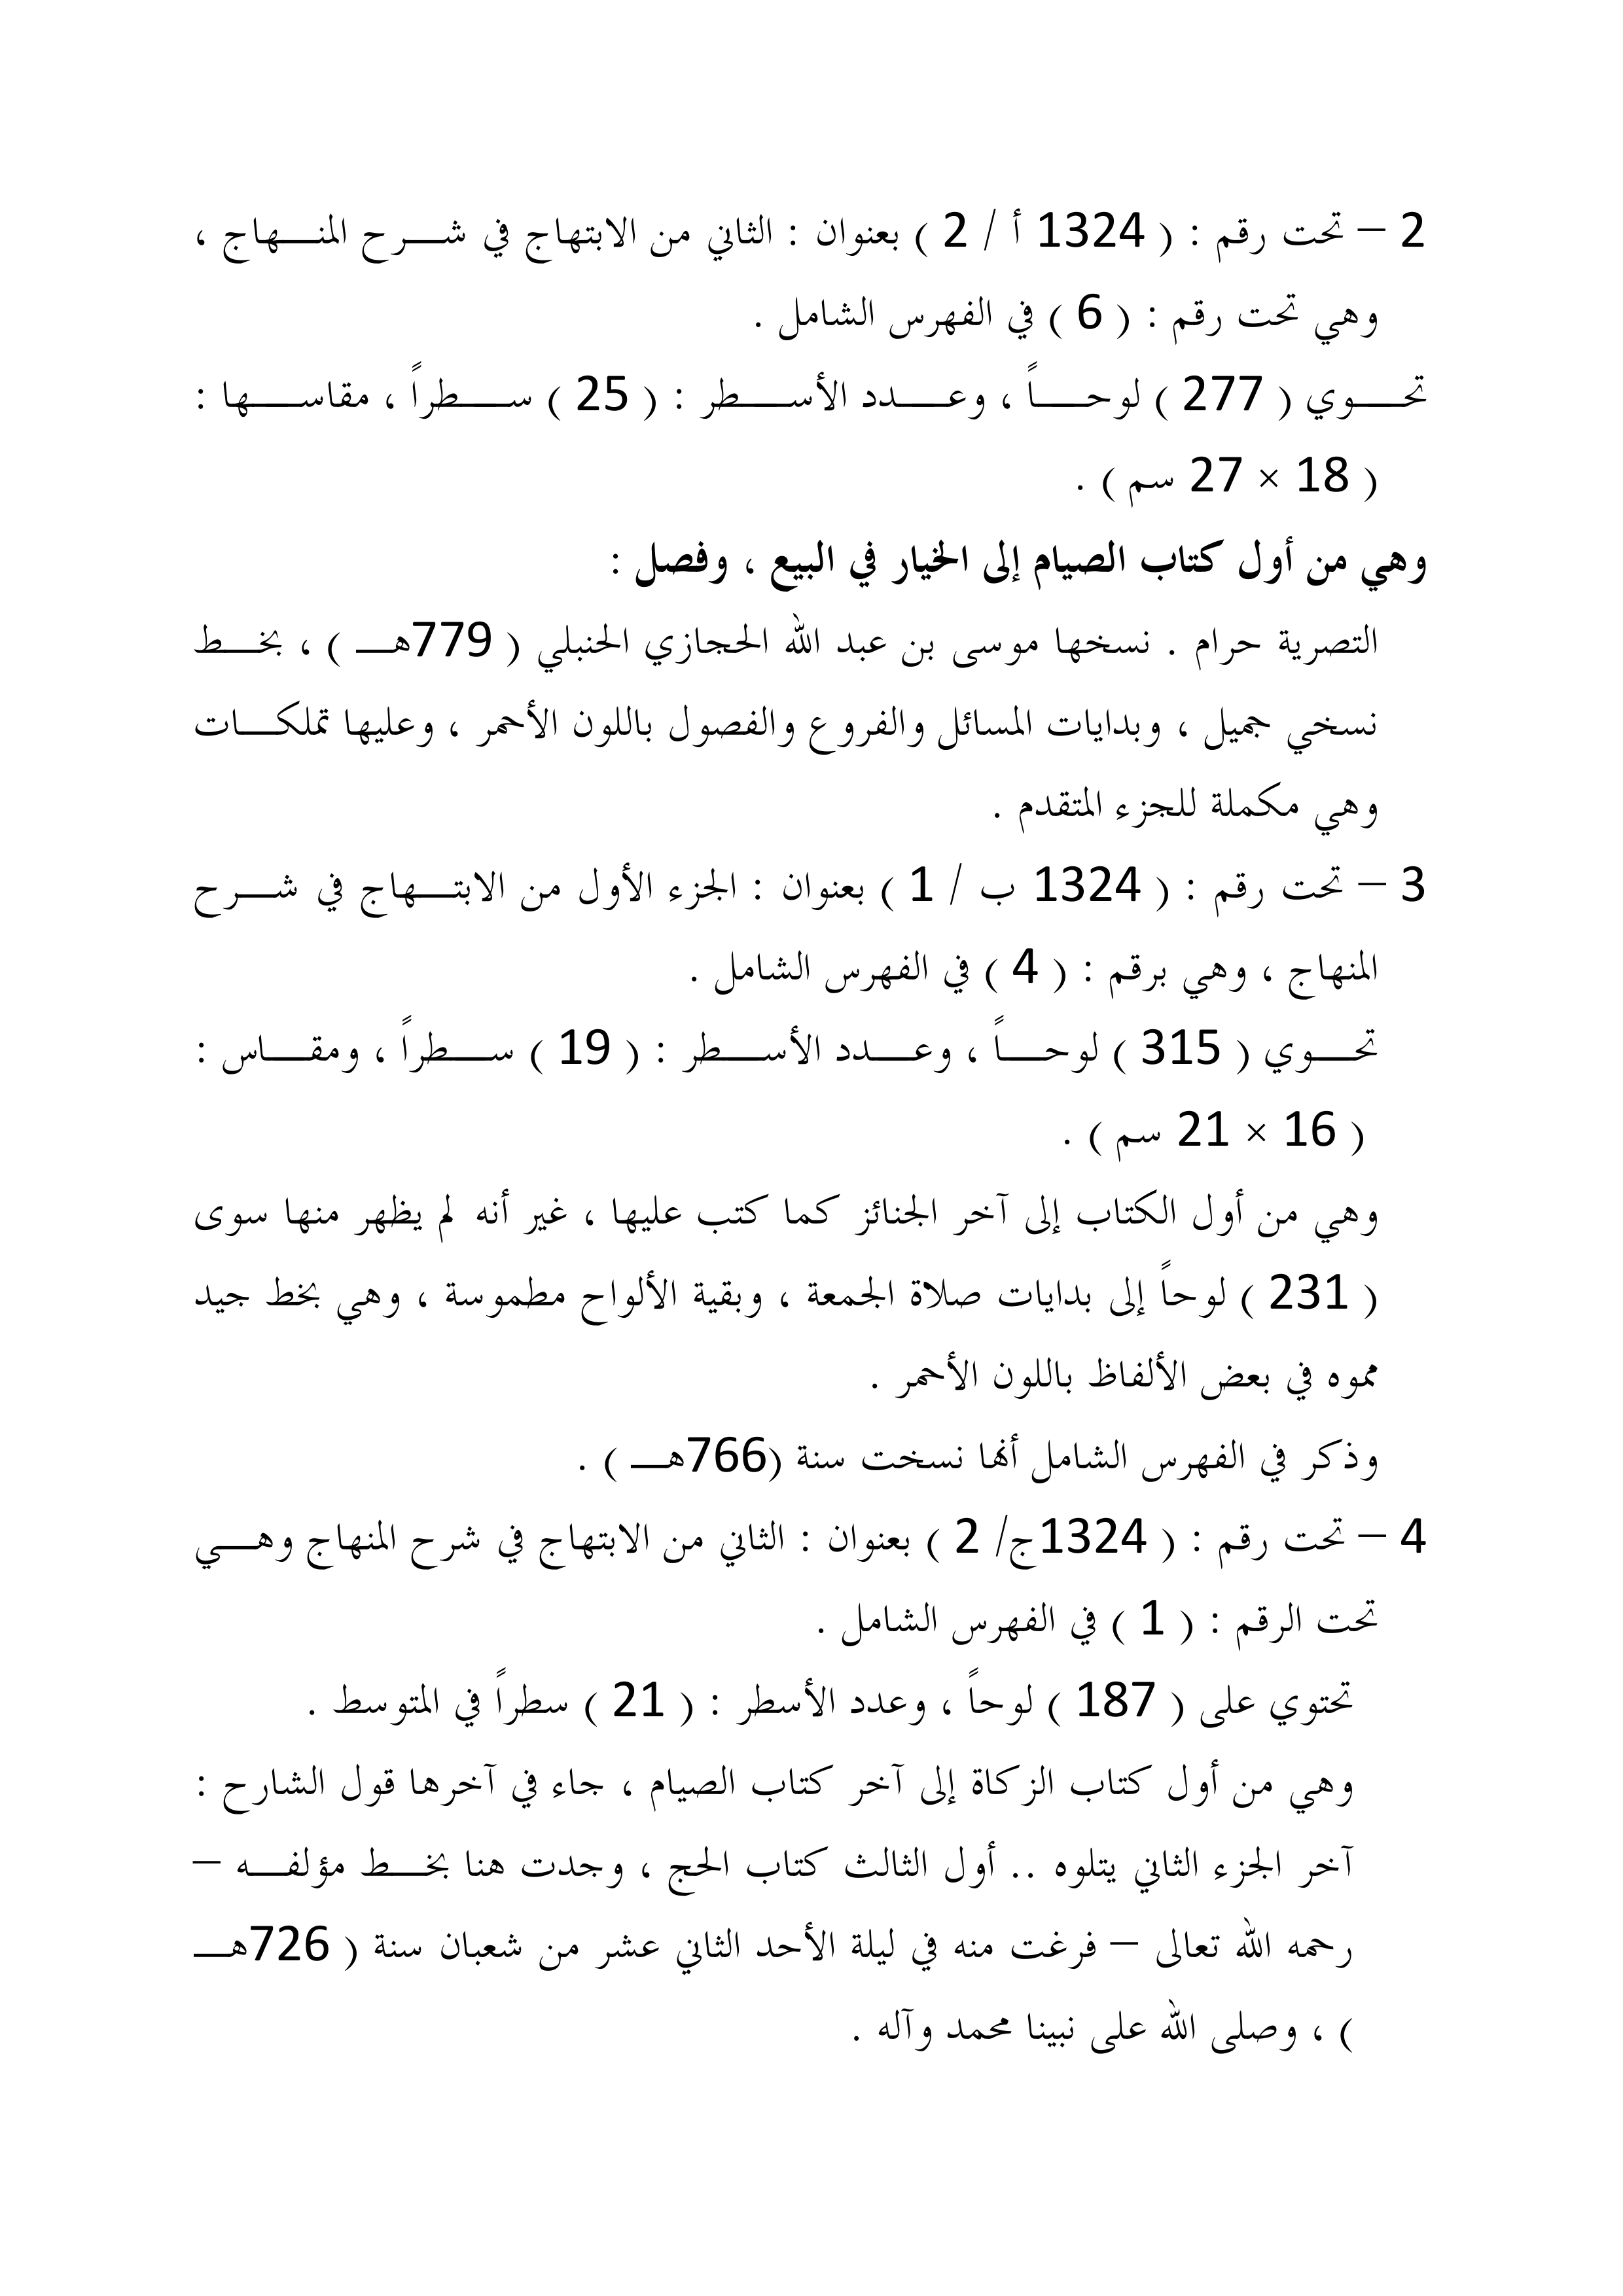 2 – تحت رقم : ( 1324 أ / 2 ) بعنوان : الثاني من الابتهاج في شرح المنهاج ،
وهي تحت رقم : ( 6 ) في الفهرس الشامل .
تحوي ( 277 ) لوحاً ، وعدد الأسطر : ( 25 ) سطراً ، مقاسها :
( 18 × 27 سم ) .
وهي من أول كتاب الصيام إلى الخيار في البيع ، وفصل :
التصرية حرام . نسخها موسى بن عبد الله الحجازي الحنبلي ( 779هـ ) ، بخط
نسخي جميل ، وبدايات المسائل والفروع والفصول باللون الأحمر ، وعليها تملكات
وهي مكملة للجزء المتقدم .
3 – تحت رقم : ( 1324 ب / 1 ) بعنوان : الجزء الأول من الابتهاج في شرح
المنهاج ، وهي برقم : ( 4 ) في الفهرس الشامل .
تحوي ( 315 ) لوحاً ، وعدد الأسطر : ( 19 ) سطراً ، ومقاس :
( 16 × 21 سم ) .
وهي من أول الكتاب إلى آخر الجنائز كما كتب عليها ، غير أنه لم يظهر منها سوى
( 231 ) لوحاً إلى بدايات صلاة الجمعة ، وبقية الألواح مطموسة ، وهي بخط جيد
مموه في بعض الألفاظ باللون الأحمر .
وذكر في الفهرس الشامل أنها نسخت سنة (766هـ ) .
4 – تحت رقم : ( 1324ج/ 2 ) بعنوان : الثاني من الابتهاج في شرح المنهاج وهي
تحت الرقم : ( 1 ) في الفهرس الشامل .
تحتوي على ( 187 ) لوحاً ، وعدد الأسطر : ( 21 ) سطراً في المتوسط .
وهي من أول كتاب الزكاة إلى آخر كتاب الصيام ، جاء في آخرها قول الشارح :
آخر الجزء الثاني يتلوه .. أول الثالث كتاب الحج ، وجدت هنا بخط مؤلفه –
رحمه الله تعالى – فرغت منه في ليلة الأحد الثاني عشر من شعبان سنة ( 726هـ
) ، وصلى الله على نبينا محمد وآله .